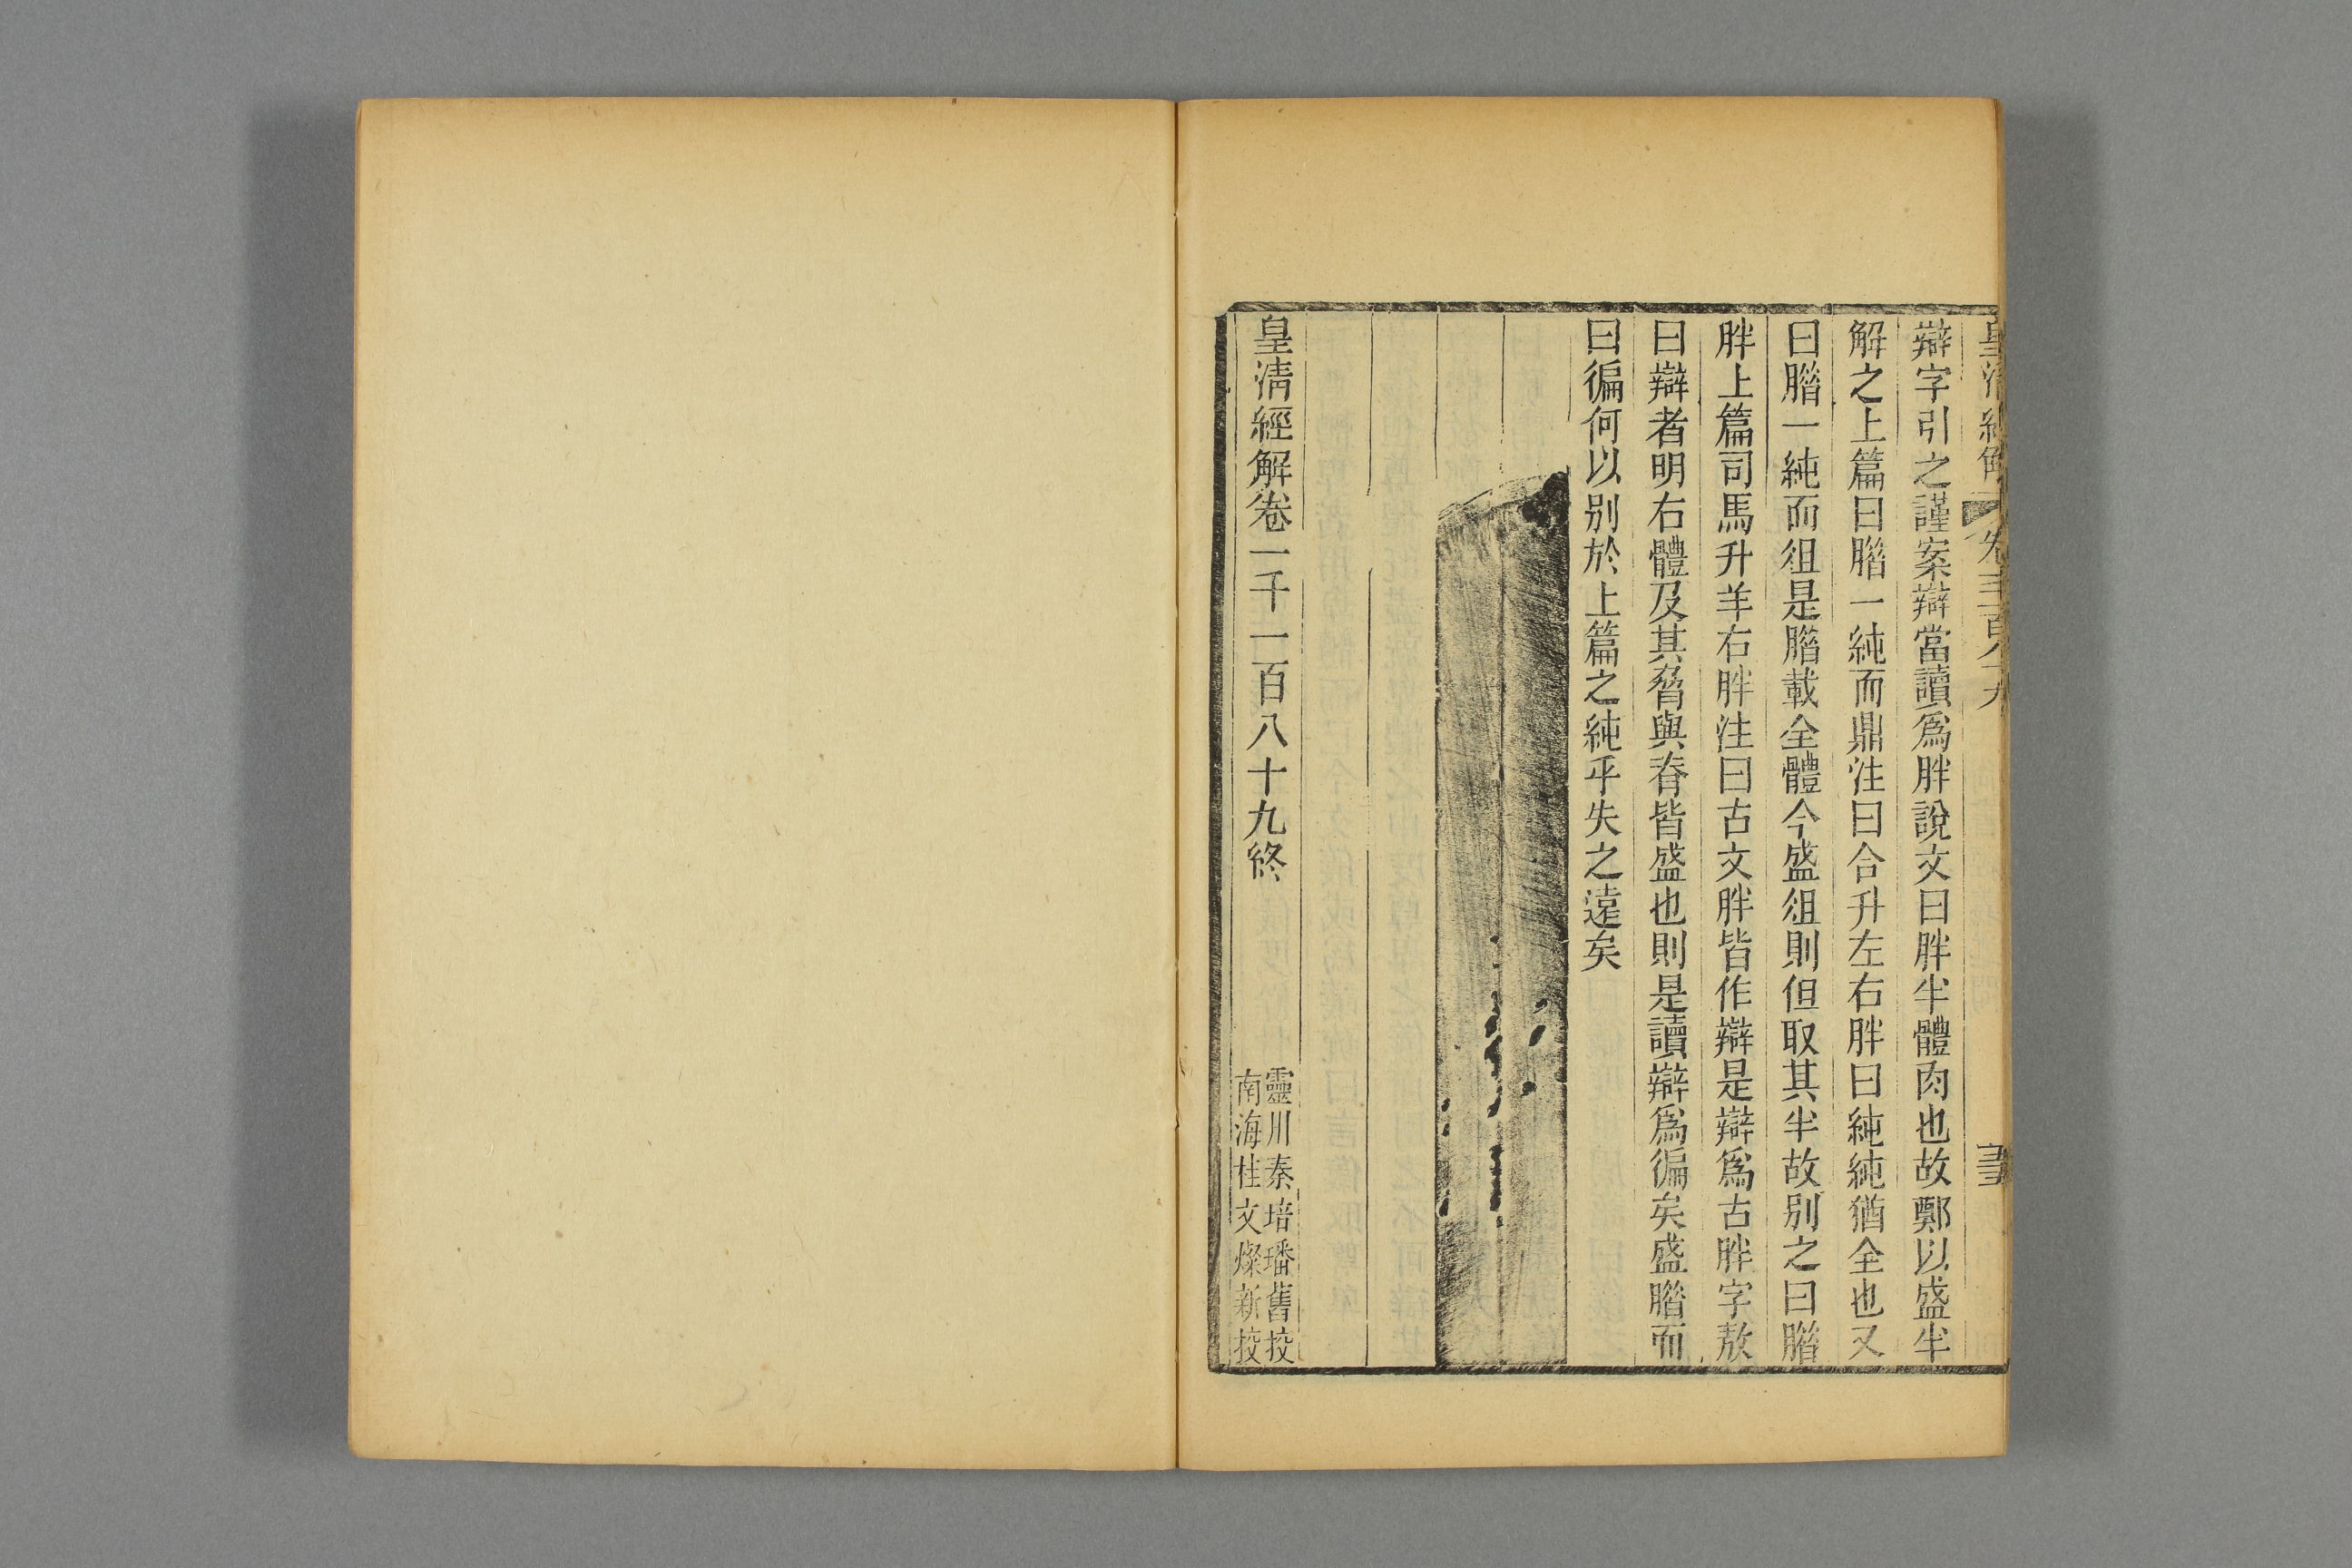 皇清經解
辯字引之謹案辯當讀爲胖說文曰胖半體肉也故鄭以盛半
解之上篇曰腊一純而鼎注曰合升左右胖曰純純猶全也又
曰腊一純而俎是腊載全體今盛俎則但取其半故別之曰腊
胖上篇司馬升羊右胖注曰古文胖皆作辯是辯爲古胖字敖
曰辯者明右體及其脅與脊皆盛也則是讀辯爲徧矣盛腊而
曰徧何以別於上篇之純乎失之遠矣
皇清經解卷一千一百八十九終
靈川秦培璠舊挍
南海桂文燦新挍